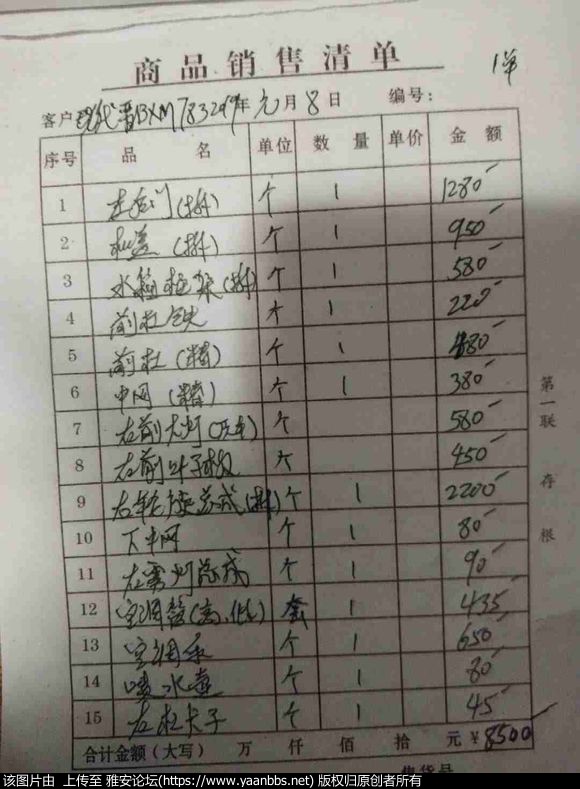 商品销售清单
1单
客户 现代晋BXM783 2019年 元月8日 编号:
序号 品名 单位 数量 单价 金额
1 (拆) 个 1 1280
2 机盖 (拆) 个 1 950
3 水箱框架(拆) 个 1 580
4 前杠铁 个 1 220
5 前杠 (精) 个 1 480
6 中网 (精) 个 1 380
7 左前大灯 个 580
8 左前叶子板 个 450
9 总成(拆) 个 1 2200
10 下中网 个 1 80
11 左雾灯总成 个 1 90
12 空调管(高、低) 套 1 435
13 空调泵 个 1 650
14 喷水壶 个 1 80
15 左杠卡子 个 1 45
合计金额(大写) 万 仟 佰 拾 元 ¥8500
第一联 存根
售货员
该图片由 上传至 雅安论坛(https://www.yaanbbs.net) 版权归原创者所有